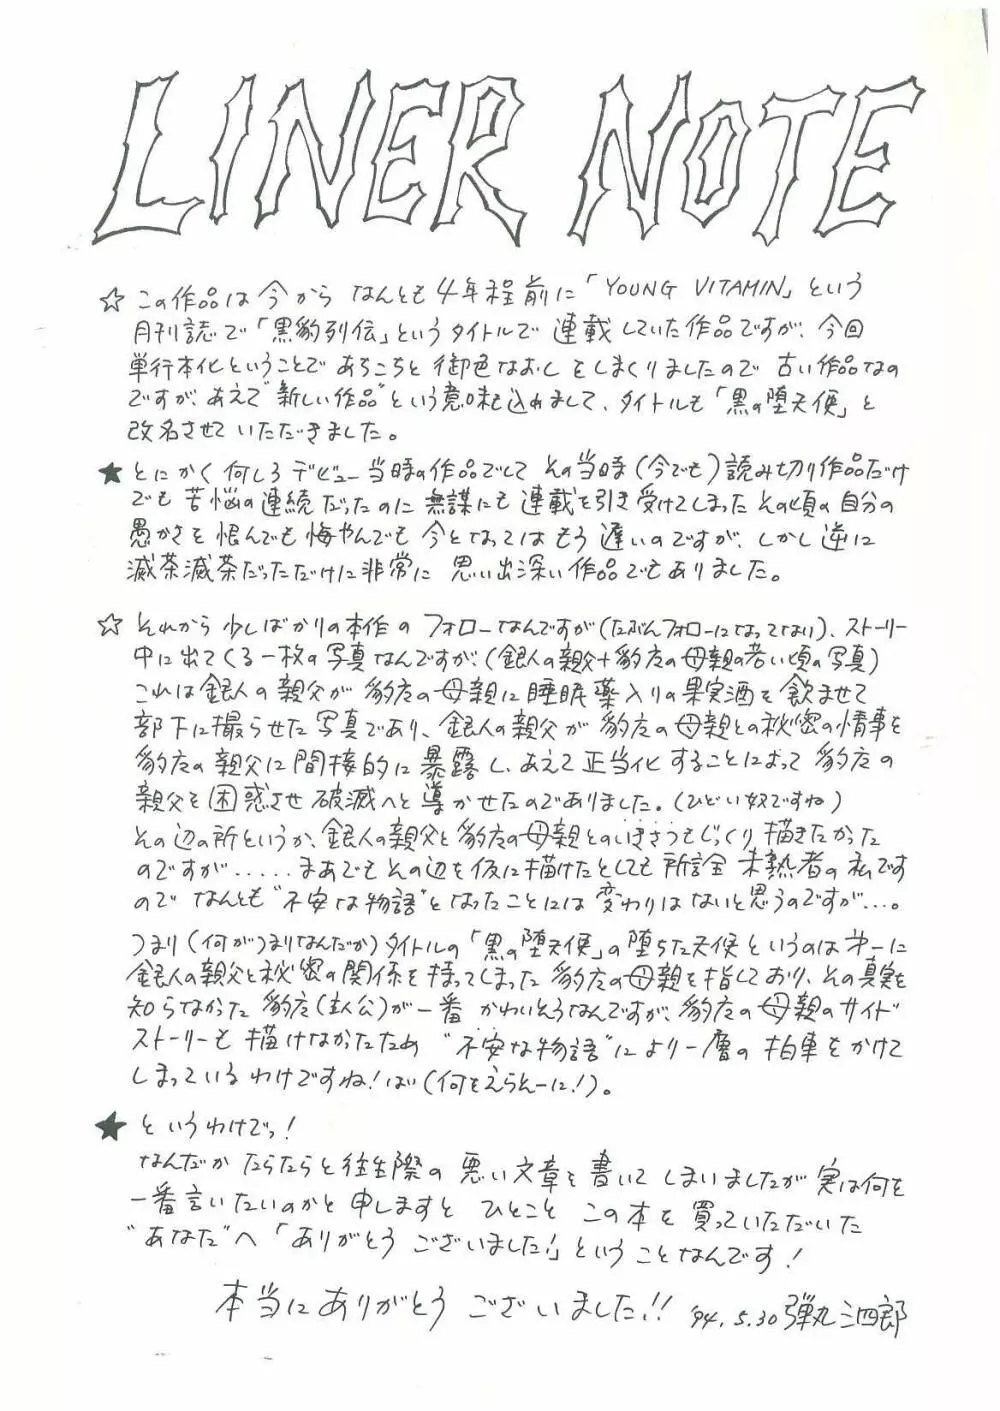 LINER NOTE
☆ この作品は今から なんとも4年程前に「YOUNG VITAMIN」という
月刊誌で「黒豹列伝」というタイトルで 連載していた作品ですが、今回
単行本化ということで あちこちと 御色なおし をしまくりましたので 古い作品なの
ですが、あえて"新しい作品"という意味も込めまして、タイトルも「黒の堕天使」と
改名させていただきました。
★ とにかく何しろデビュー当時の作品でして その当時(今でも)読み切り作品だけ
でも 苦悩の連続だったのに 無謀にも 連載を引き受けてしまった その頃の自分の
愚かさを 恨んでも 悔やんでも 今となってはもう 遅いのですが、しかし逆に
滅茶滅茶だっただけに非常に 思い出深い作品でもありました。
☆ それから 少しばかりの本作の フォローなんですが(たぶんフォローになってない)、ストーリー
中に出てくる一枚の写真なんですが、(銀人の親父+豹彦の母親の若い頃の写真)
これは銀人の親父が 豹彦の母親に睡眠薬入りの果実酒を飲ませて
部下に撮らせた写真であり、銀人の親父が 豹彦の母親との秘密の情事を
豹彦の親父に間接的に暴露し、あえて正当化することによって 豹彦の
親父を困惑させ 破滅へと 導かせたのでありました。(ひどい奴ですね)
その辺の所というか、銀人の親父と豹彦の母親とのいきさつもじっくり描きたかった
のですが.....まあでもその辺を仮に描けたとしても 所詮 未熟者の私です
ので なんとも"不安な物語"となったことには 変わりはないと思うのですが...。
つまり(何がつまりなんだか)タイトルの「黒の堕天使」の堕ちた天使というのは第一に
銀人の親父と秘密の関係を持ってしまった 豹彦の母親を指しており、その真実を
知らなかった 豹彦(主人公)が一番 かわいそうなんですが、豹彦の母親のサイド
ストーリーも 描けなかったため "不安な物語"により一層の 拍車をかけて
しまっているわけですね!はい(何をえらそーに!)。
★ というわけでっ!
なんだか たらたらと往生際の 悪い文章を 書いてしまいましたが 実は何を
一番言いたいのかと 申しますと ひとこと この本を 買っていただいた
"あなた"へ「ありがとう ございました!」ということなんです!
本当にありがとう ございました!! '94.5.30 弾丸三四郎